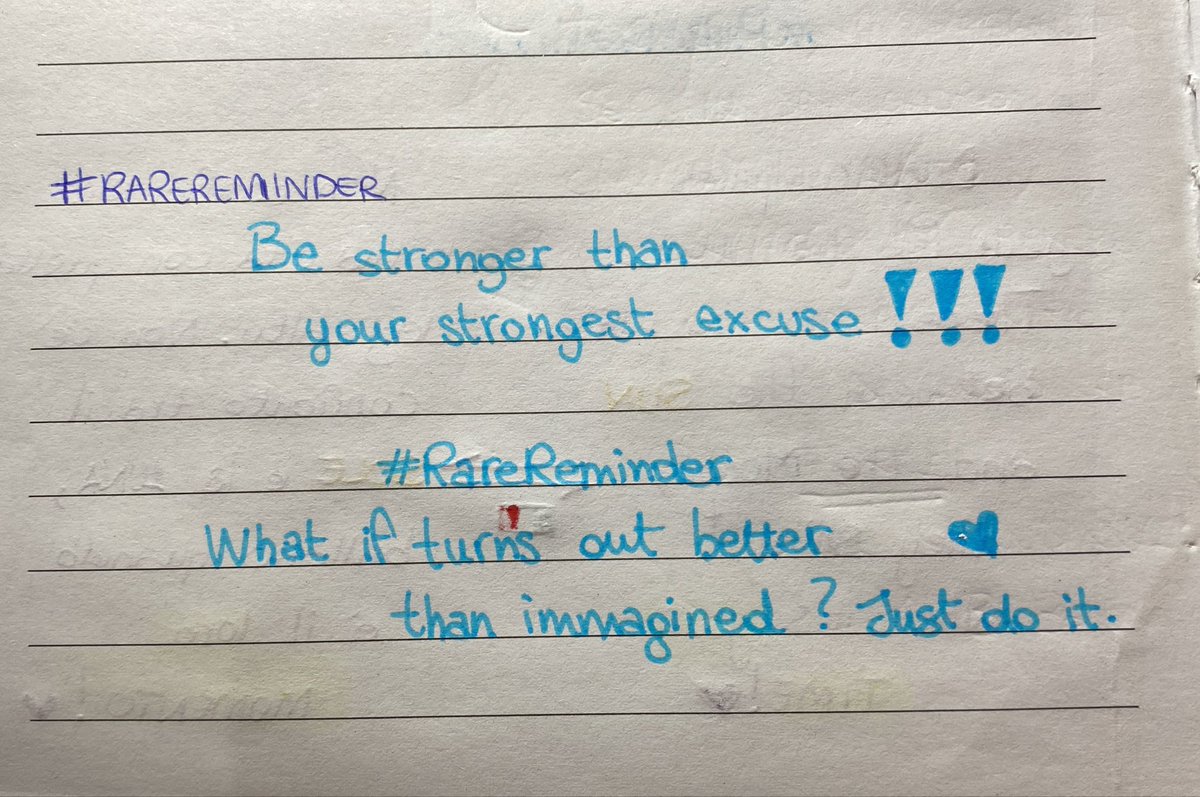 #RAREREMINDER
Be stronger than
your strongest excuse !!!
#RareReminder
What if turns out better
than immagined ? Just do it.